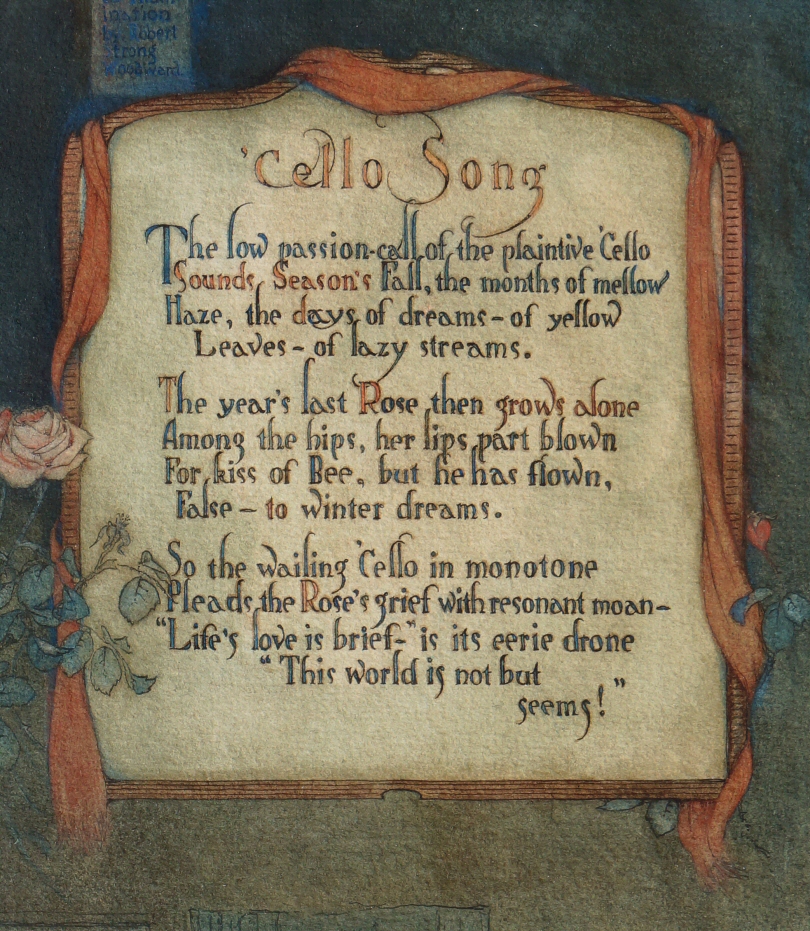 ination
by Robert
Strong
Woodward.
'Cello Song
The low passion-call of the plaintive 'Cello
Sounds Season's Fall, the months of mellow
Haze, the days of dreams - of yellow
Leaves - of lazy streams.
The year's last Rose then grows alone
Among the hips, her lips part blown
For kiss of Bee, but he has flown,
False - to winter dreams.
So the wailing 'Cello in monotone
Pleads the Rose's grief with resonant moan -
"Life's love is brief-" is its eerie drone
"This world is not but
seems!"